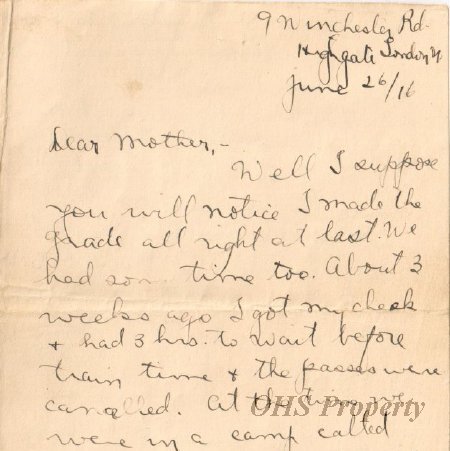 9 Winchester Rd.
Highgate London N.
June 26/16
Dear Mother,-
Well I suppose
you will notice I made the
grade all right at last. We
had som time too. About 3
weeks ago I got my check
+ had 3 hrs. to wait before
train time + the passes were
cancelled. At the time we
were in a camp called
OHS Property